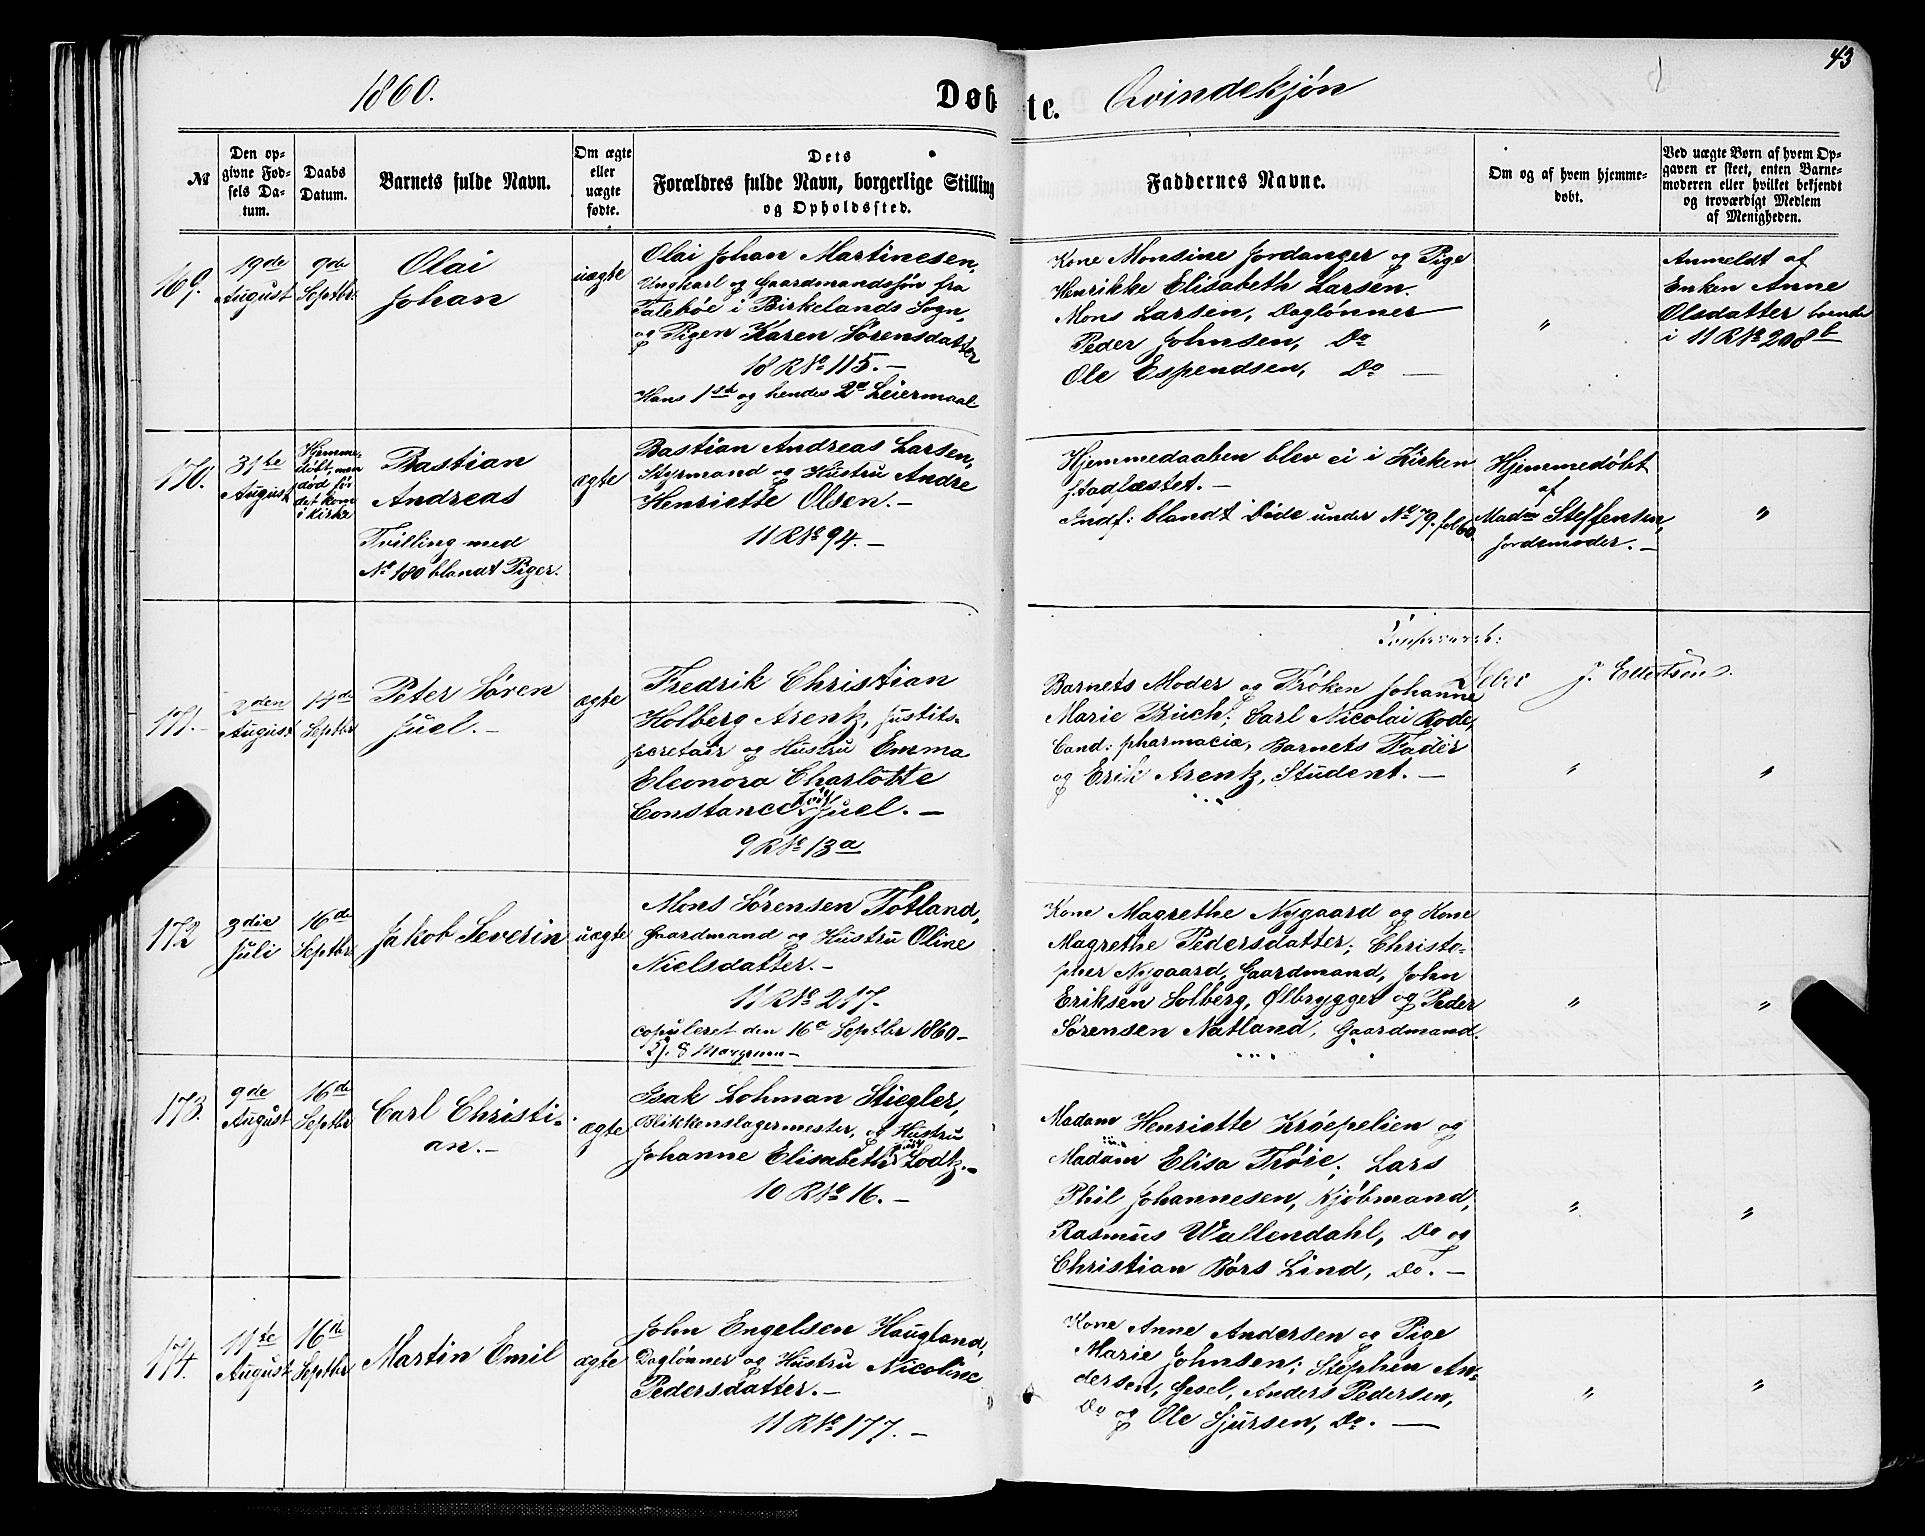 43
1860.
Døbte.
Qvindekjøn
№
Den op-
givne Fød-
sels Da-
tum.
Daabs
Datum.
Barnets fulde Navn.
Om ægte
eller
uægte
fødte.
Dets
Forældres fulde Navn, borgerlige Stilling
og Opholdssted.
Faddernes Navne.
Om og af hvem hjemme-
døbt.
Ved uægte Børn af hvem Op-
gaven er skeet, enten Barne-
moderen eller hvilket bekjendt
og troværdigt Medlem
af Menigheden.
169.
19de
August
9de
Septbr.
Olai
Johan
uægte
Olai Johan Martinesen,
Ungkarl og Gaardmandssøn fra
i Birkelands Sogn,
og Pigen Karen Sørensdatter
10 R № 115. —
Hans 1ste og hendes 2d Leiermaal
Kone Monsine Jordanger og Pige
Henrikke Elisabeth Larsen.
Mons Larsen, Daglønner
Peder Johnsen, Do
Ole Espendsen, Do —
"
Anmeldt af
Enken Anne
Olsdatter boende
i 11 R № 208 b
170.
31te
August
Hjemme-
døbt, men
død før
det kom
i Kirke
Bastian
Andreas
Tvilling med
No 180 blandt Piger.
ægte
Bastian Andreas Larsen,
Styrmand og Hustru Andre
Henriette Olsen. —
11 R № 94. —
Hjemmedaaben blev ei i Kirken
stadfæstet. —
Indf: blandt Døde under No 79. fol 60.
Hjemmedøbt
af
Madm Steffensen,
Jordemoder. —
"
171. —
2den
August
14de
Septbr
Peter Søren
Juel. —
ægte
Fredrik Christian
Holberg Arentz, Justits-
secretair og Hustru Emma
Eleonora Charlotte
Constance født Juel. —
9 R № 13 a
J. Ellertsen.
Barnets Moder og Frøken Johanne
Marie Buch; Carl Nicolai Rode,
Cand: pharmaciæ, Barnets Fader
og Erik Arentz, Student. —
"
"
172
3die
Juli
16de
Septbr.
Jakob Severin
uægte
Mons Sørensen Tøtland,
Gaardmand og Hustru Oline
Nielsdatter. —
11 R № 217.
copuleret den 16d Septbr 1860 —
Kone Magrethe Nygaard og Kone
Magrethe Pedersdatter; Christo-
pher Nygaard, Gaardmand, John
Eriksen Solberg, Ølbrygger og Peder
Sørensen Natland, Gaardmand.
"
"
173.
9de
August
16de
Septbr
Carl Christi-
an. —
ægte
Isak Lohman Stiegler,
Blikkenslagermester, og Hustru
Johanne Elisabeth født Lodtz. —
10 R № 16. —
Madam Henriette Krøepelien og
Madam Elisa Trøie; Lars
Phil Johannesen, Kjøbmand,
Rasmus Wallendahl, Do og
Christian Børs Lind, Do. —
"
"
174.
11te
August
16de
Septbr
Martin Emil
ægte
John Engelsen Haugland,
Daglønner og Hustru Nicoline
Pedersdatter. —
11 R № 177. —
Kone Anne Andersen og Pige
Marie Johnsen; Stephen An-
dersen, Gesel, Anders Pedersen,
Do og Ole Sjursen, Do. —
"
"